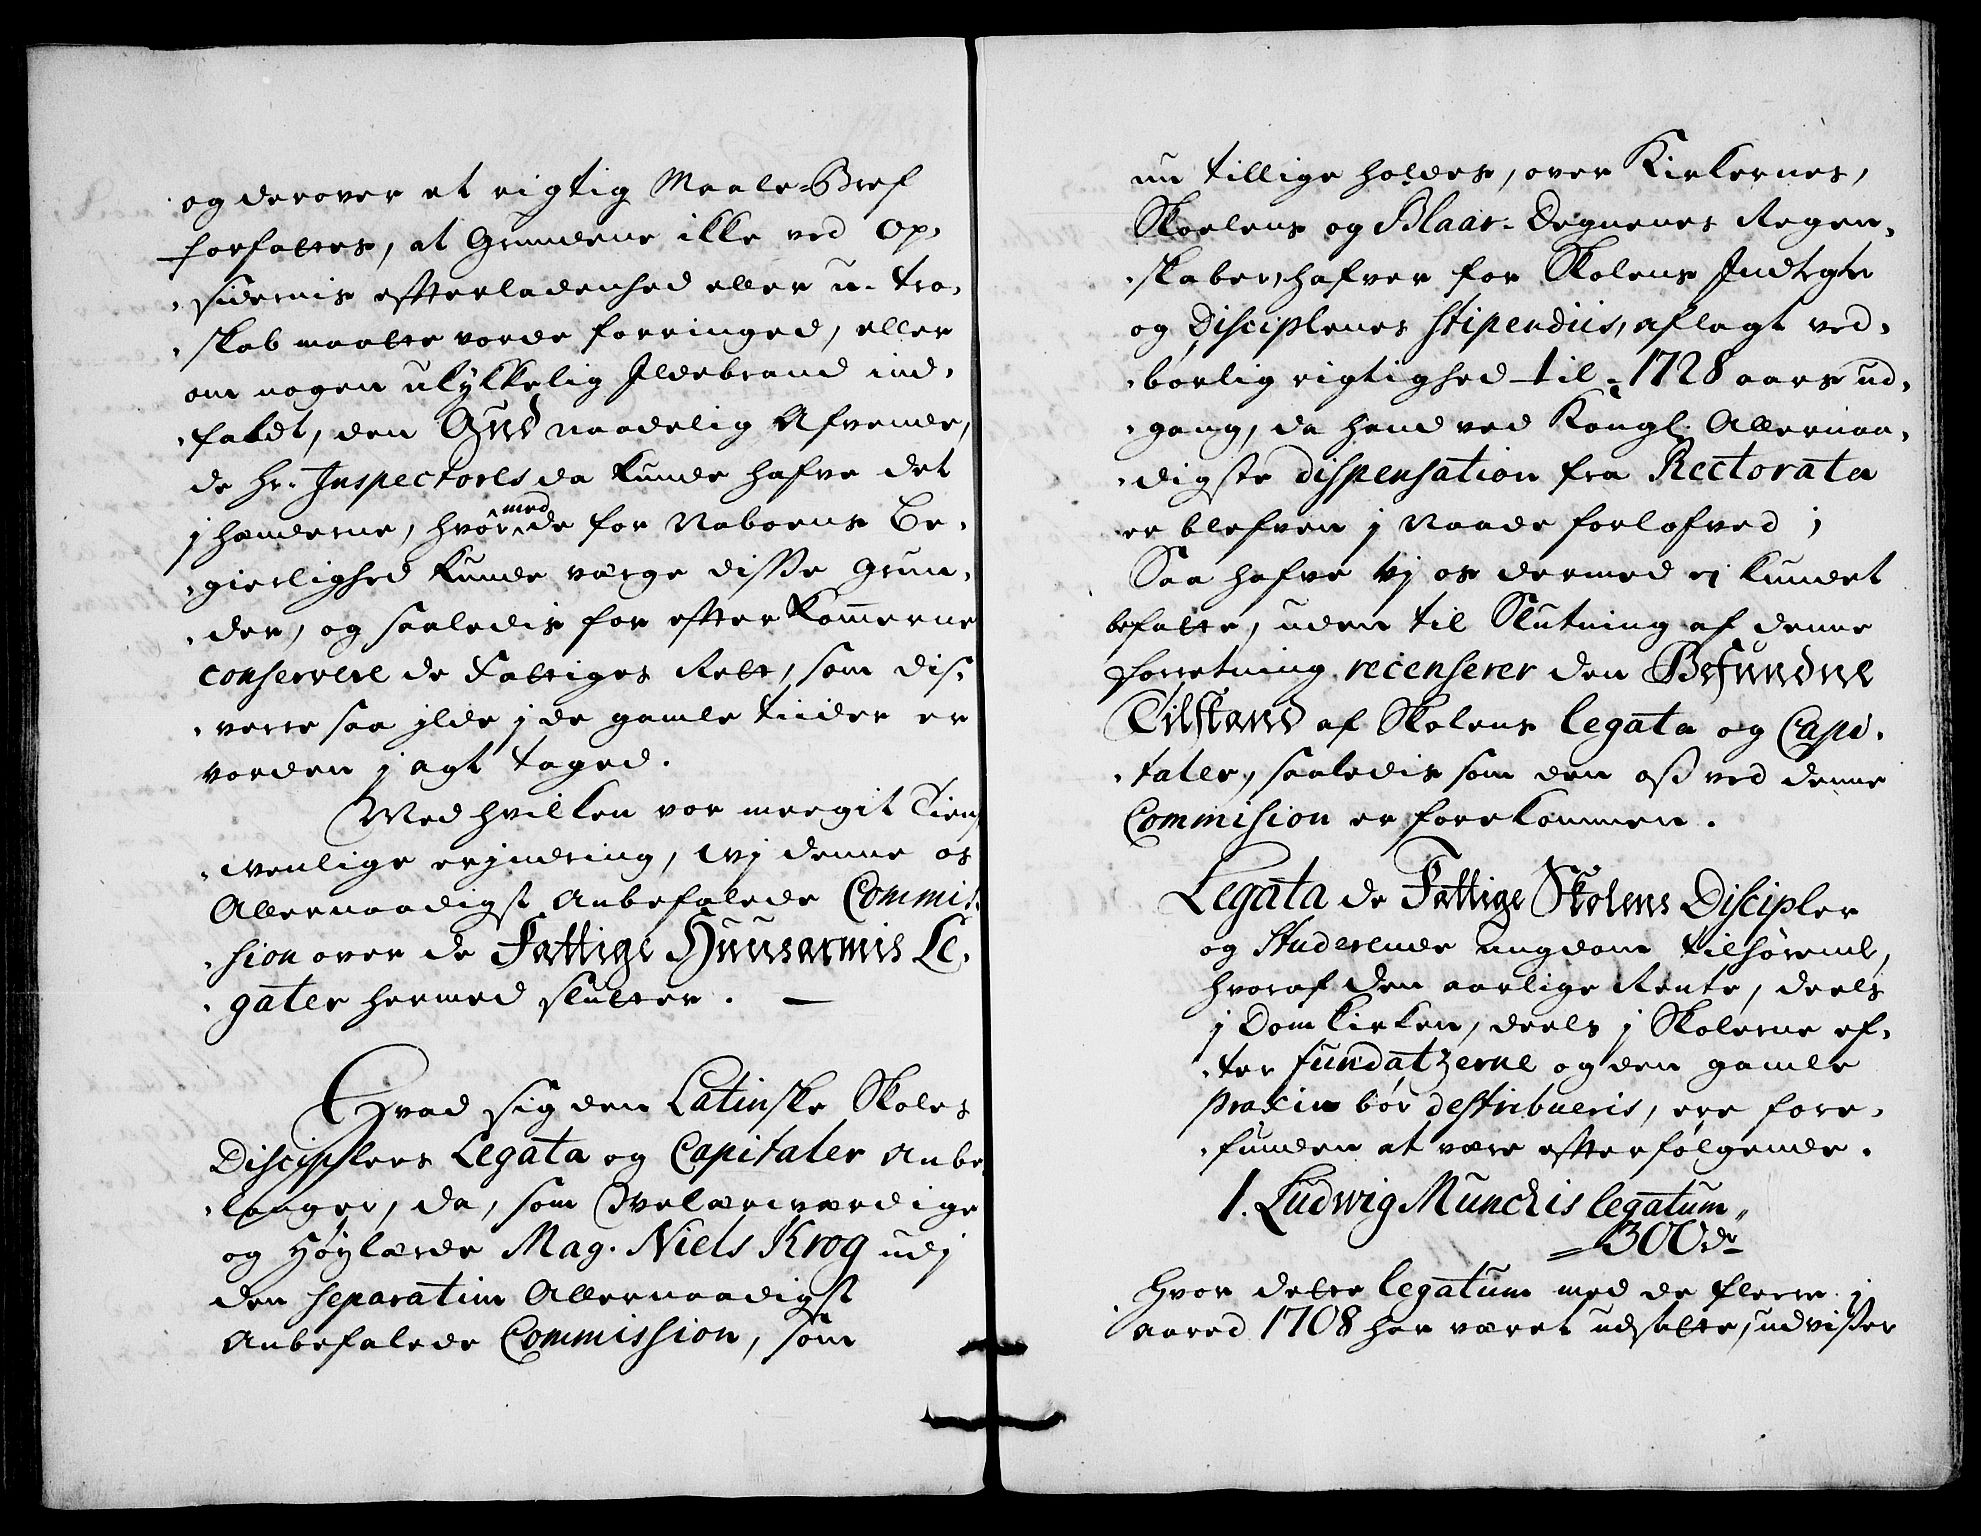 og derover et rigtig Maale-Bref
forfattes, at Grundene ikke ved Op-
-sidernis efterladenhed eller u-tro-
-skab maatte vorde forringed, eller
om nogen ulykkelig Ildebrand ind-
-faldt, den Gud naadelig Afvende,
de Hr. Inspectores da kunde hafve det
j hænderne, hvormed de for Naboens Be-
-gierlighed kunde værge disse Grun-
-der, og saaledis for efterkom̄erne
conservere de Fattiges Rett, som dis-
-verre saa jlde j de gamle tiider er
vorden j agt taged.
Med hvilken vor meegit Tien-
-venlige erjndring, wj denne os
Allernaadigst Anbefalede Commis-
-sion over de Fattige Huusarmis Le-
-gater hermed slutter. —
Hvad sig den Latinske Skoles
Disciplers Legata og Capitaler Anbe-
-langer, da, som Welærværdige
og Høylærde Mag. Niels Krog udj
den separatim Allernaadigst
Anbefalede Commission, som
nu tillige holdes, over Kirkernes,
Skoelens og Blaar-Degnenes Regen-
-skaber, hafver for Skolens Indtegter
og Disciplenes Stipendiis, aflagt ved-
-børlig rigtighed til 1728 aars ud-
-gang, da hand ved Kongl. Allernaa-
-digste dispensation fra Rectoratet
er blefven j Naade forlofved;
Saa hafve Vj os dermed ej kundet
befatte, uden til Slutning af denne
forretning recenserer den Befundne
Tilstand af Skolens Legata og Capi-
-taler, saaledis som den oss ved denne
Commission er forekommen.
Legata de Fattige Skolens Discipler
og Studerende Ungdom tilhørende,
hvoraf den aarlige Rente, deels
j Domkirken, deels j Skolerne ef-
-ter fundatzerne og den gamle
praxin bør destribueris, ere fore-
-funden at være efterfølgende.
1. Ludwig Munchis legatum
= 300 dr
Hvor dette legatum med de flere j
aared 1708 har været udsatte, udviser